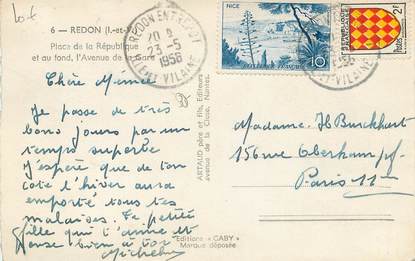 Lot
6 – REDON (I.-et-V.)
Place de la République
et au fond, l'Avenue de la Gare
REDON ENTREPOT
20 H
23 - 5
1956
ILLE-ET-VILAINE
NICE
10F
2F
Chère Mémée
Je passe de très
bons jours par un
temps superbe
J'espère que de ton
coté l'hiver aura
emporté tous tes
malaises. Ta petite
fille qui t'aime et
pense bien à toi
Micheline
ARTAUD père et fils, Editeurs
avenue de la Close, Nantes.
Madame H Burckhart
156 rue Oberkampf
Paris 11
Editions "GABY"
Marque déposée